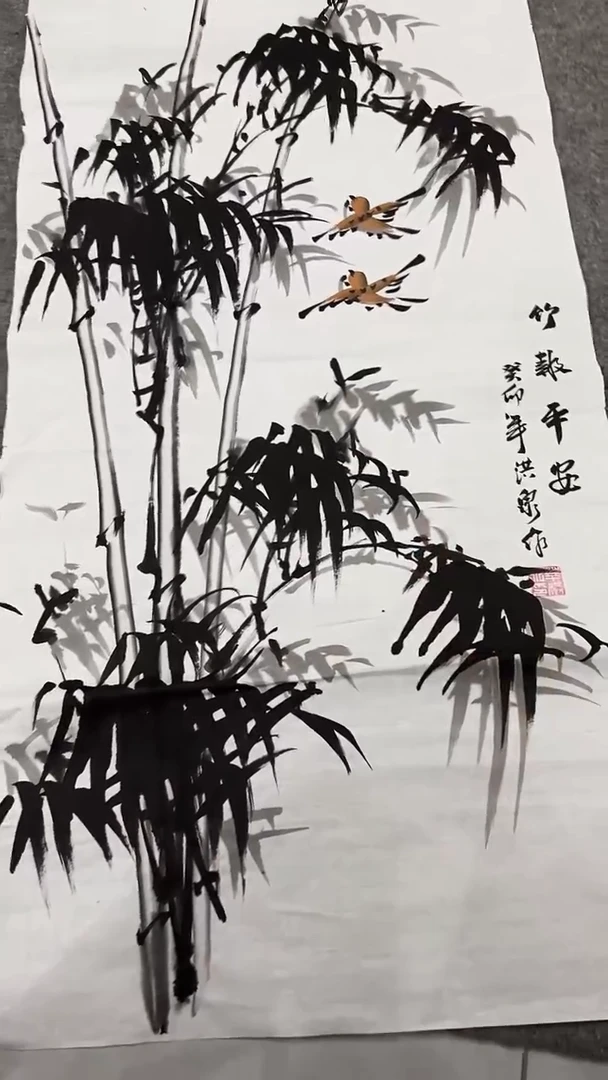 竹報平安
癸卯年洪泉作